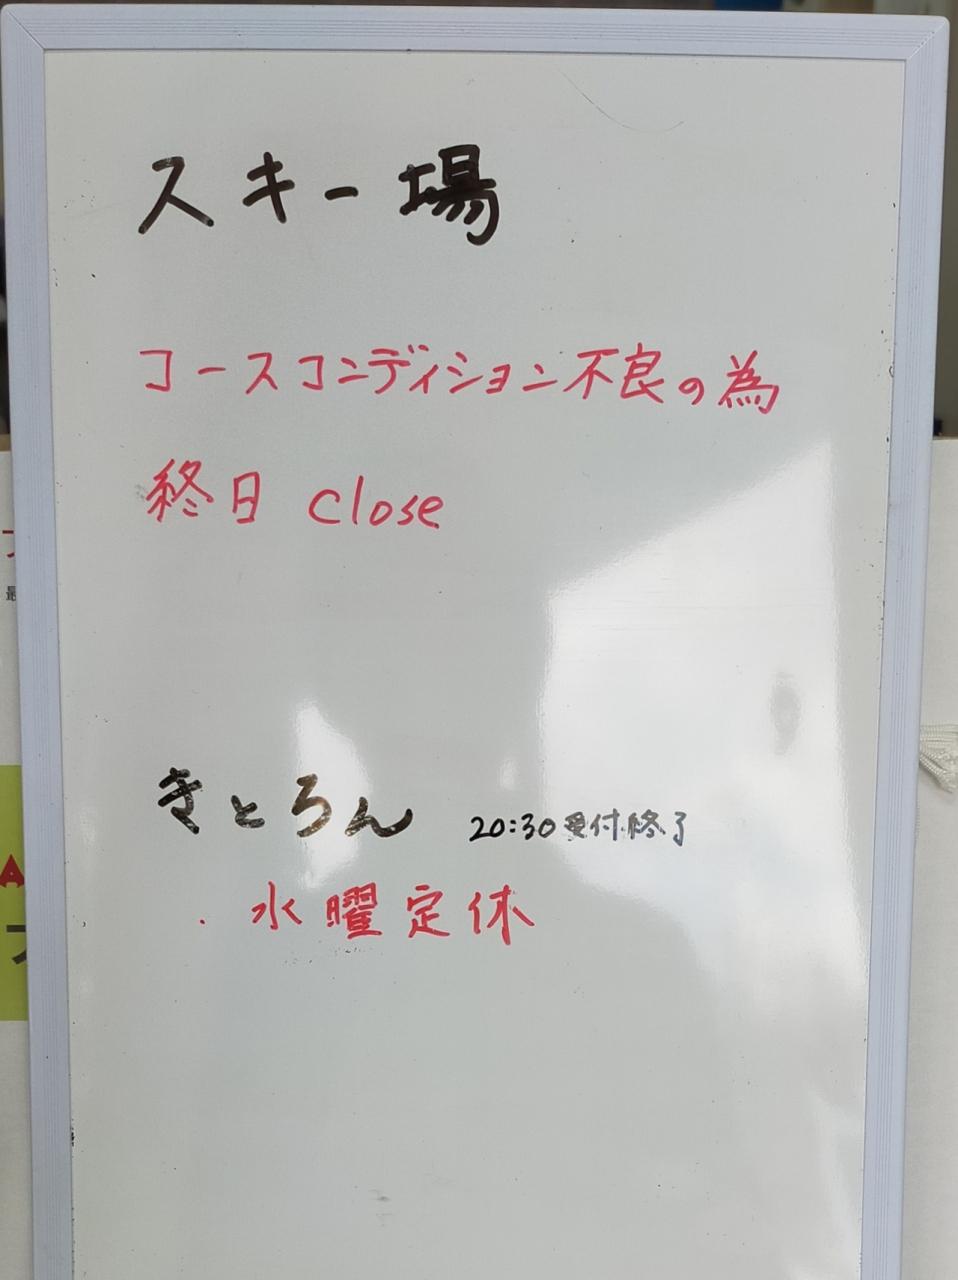 スキー場
コースコンディション不良の為
終日 close
きとろん 20:30受付終了
・水曜定休